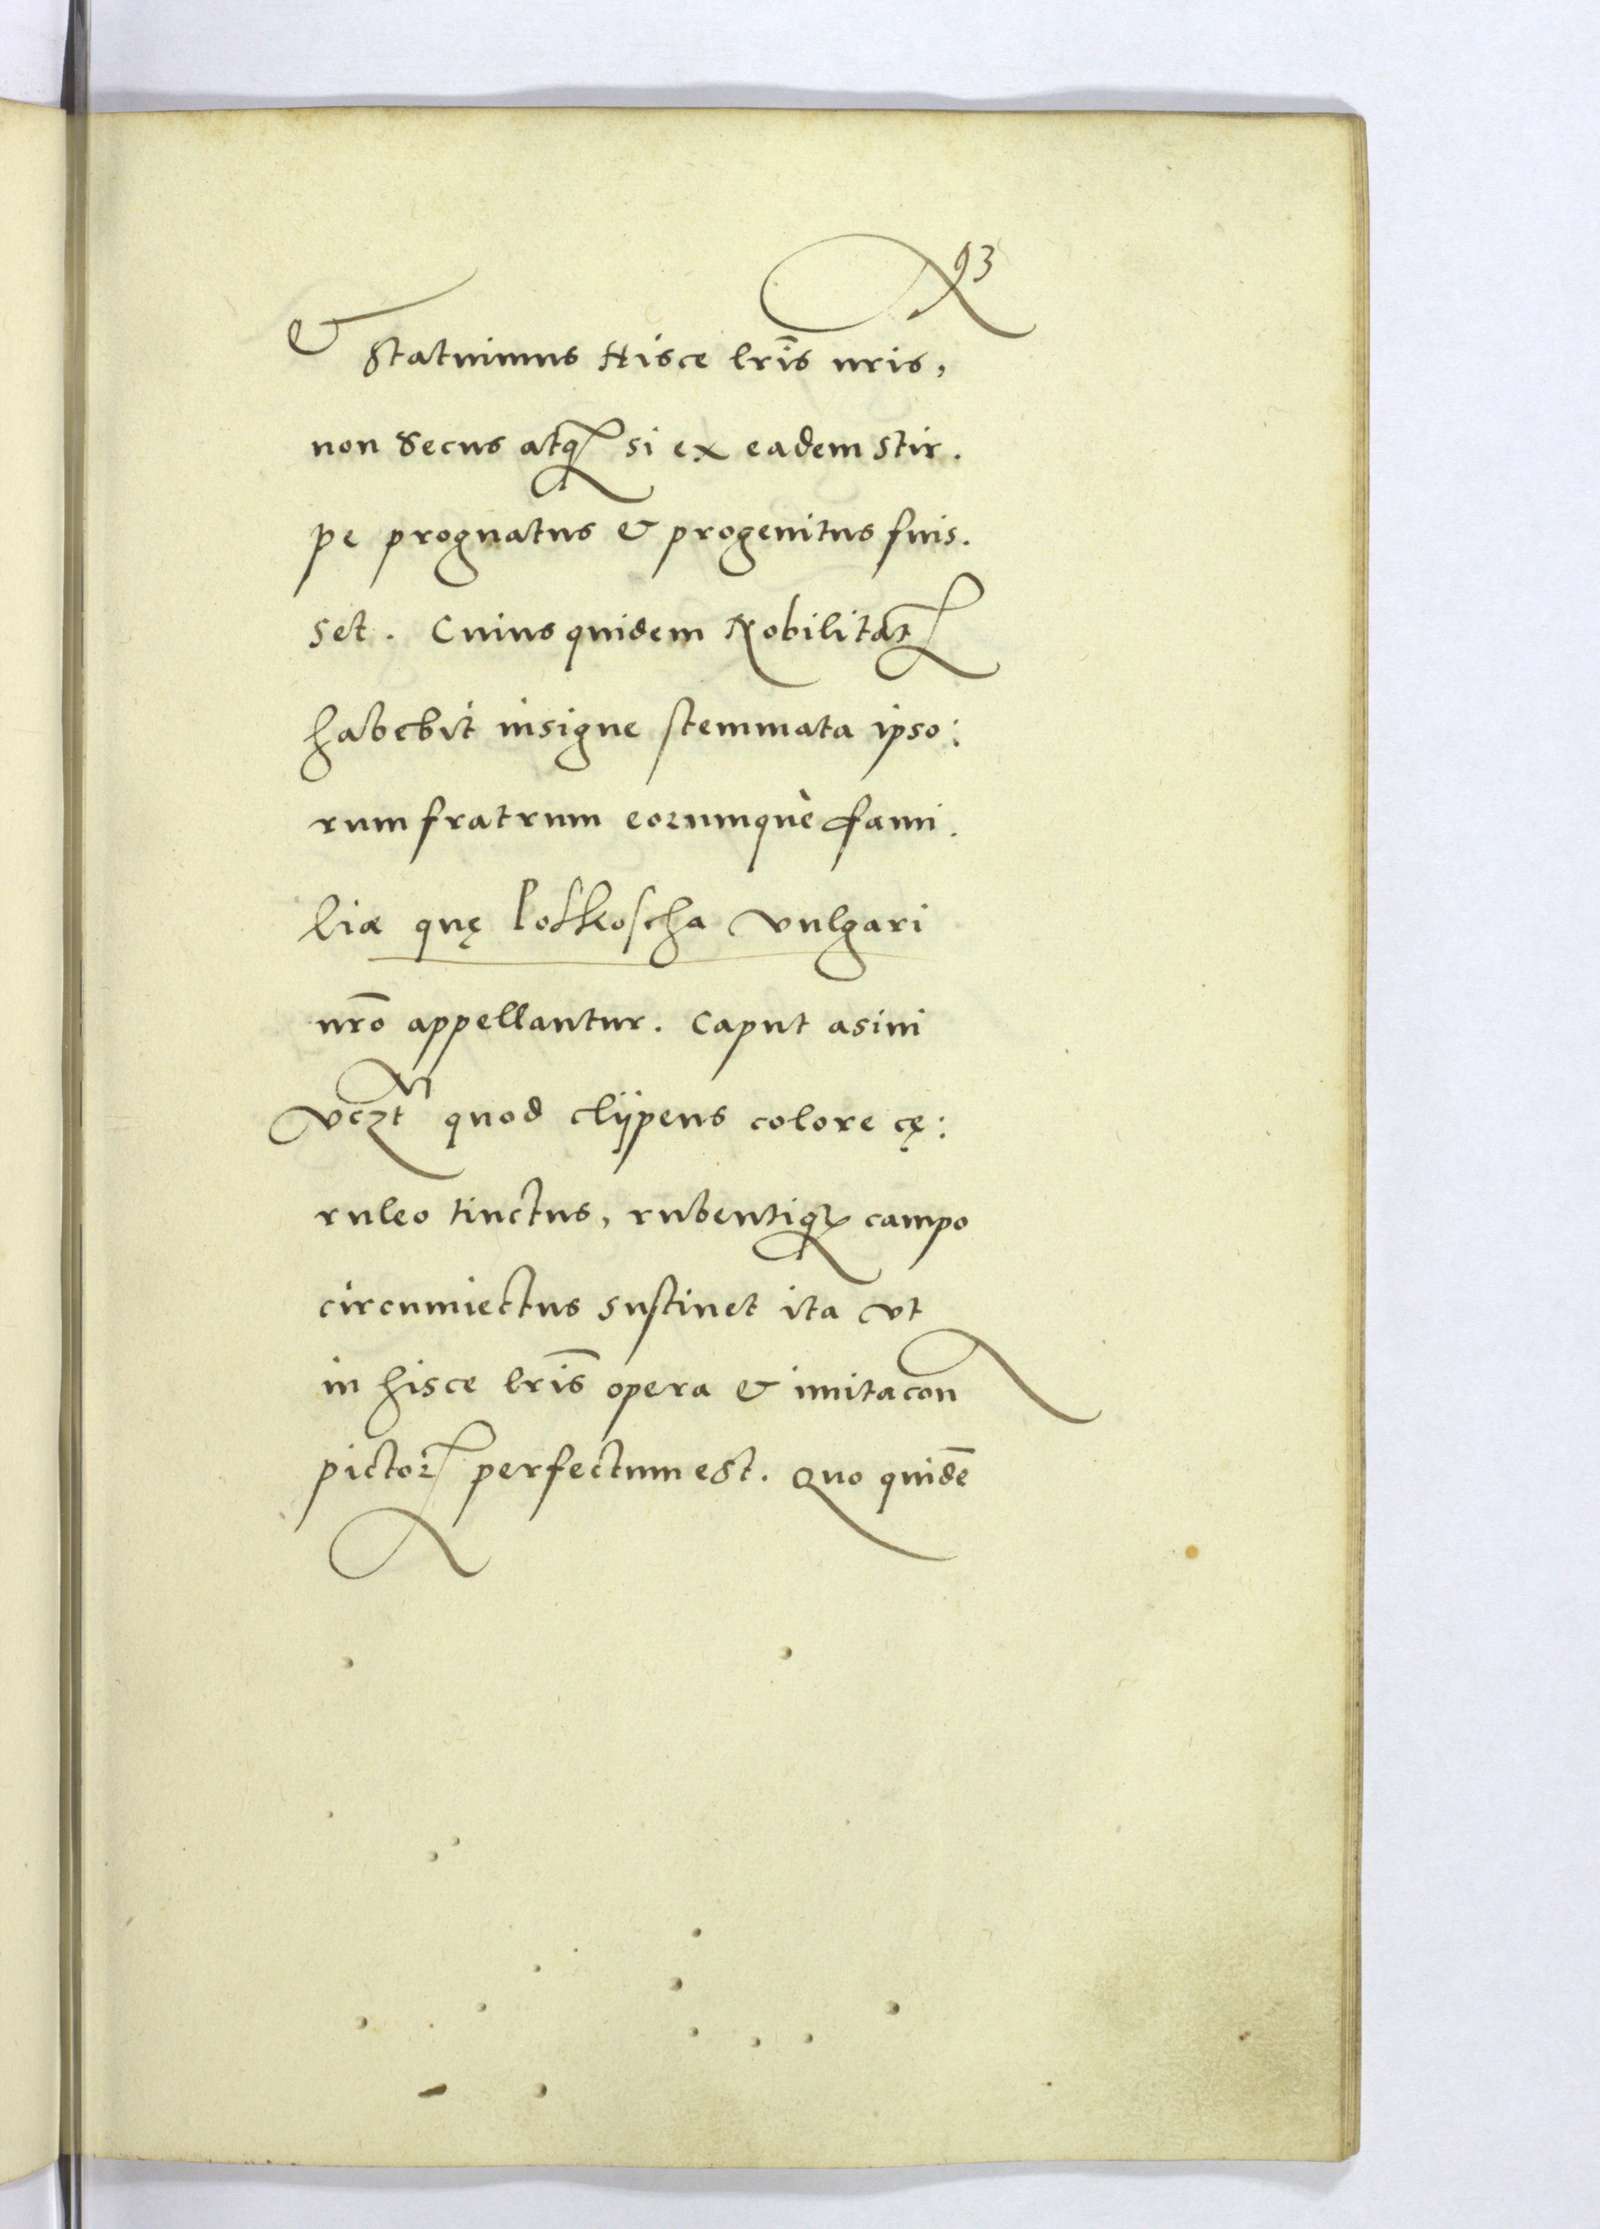 93
& Statuimus Hisce lris nris,
non secus atq si ex eadem stir.
pe prognatus & progenitus fuis.
set. Cuius quidem Nobilitat
habebit insigne stemmata ipso:
rum fratrum eorumquè fami.
liæ quę vulgari
nro appellantur. Caput asini
vczt quod clijpeus colore cę:
ruleo tinctus, rubentiq campo
circumiectus sustinet ita vt
in hisce lris opera & imitacon
pictor perfectum est. Quo quidē